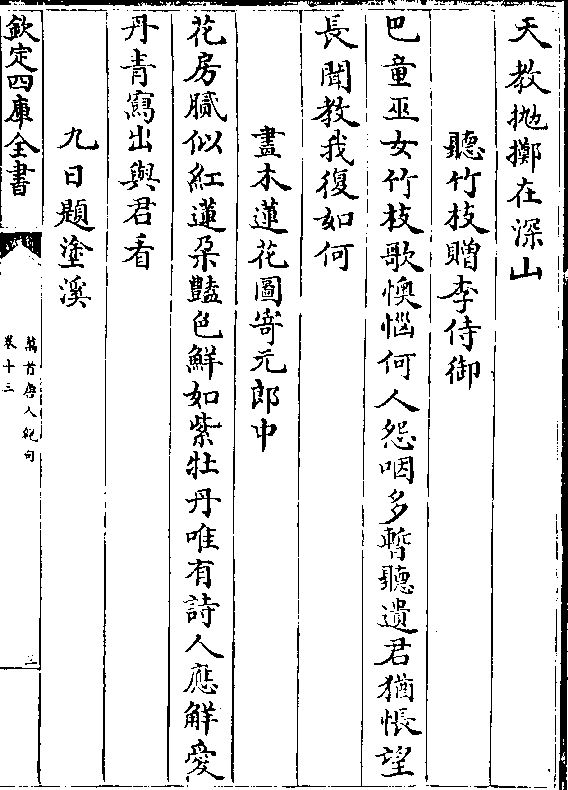 天教抛擲在深山
聽竹枝贈李侍御
巴童巫女竹枝歌懊惱何人怨咽多暫聽遣君猶悵望
長聞教我復如何
畫木蓮花圖寄元郎中
花房膩似紅蓮朶豔色鮮如紫牡丹唯有詩人應解愛
丹青寫出與君看
九日題塗溪
欽定四庫全書
萬首唐人絶句
卷十三